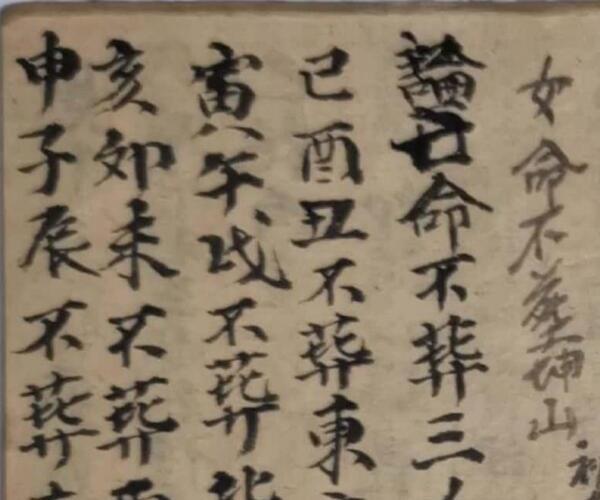 女命不葬坤山
論亡命不葬三
己酉丑不葬東
寅午戌不葬
亥卯未不葬
申子辰不葬